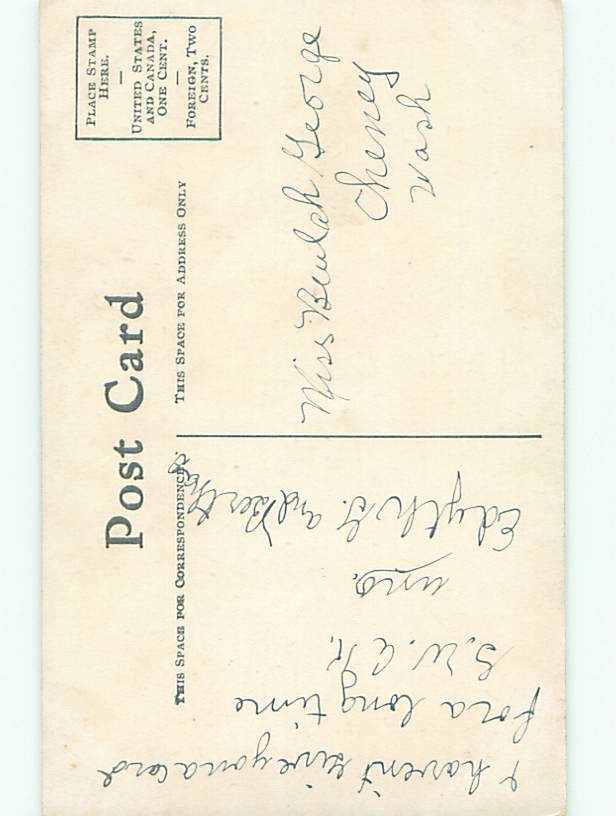 Post Card
PLACE STAMP
HERE.
—
UNITED STATES
AND CANADA,
ONE CENT.
—
FOREIGN, TWO
CENTS.
THIS SPACE FOR CORRESPONDENCE
THIS SPACE FOR ADDRESS ONLY
I haven't give you a card
for a long time
S.W.A.K.
Edyth G. and
Miss Beulah George
Cheney
Wash